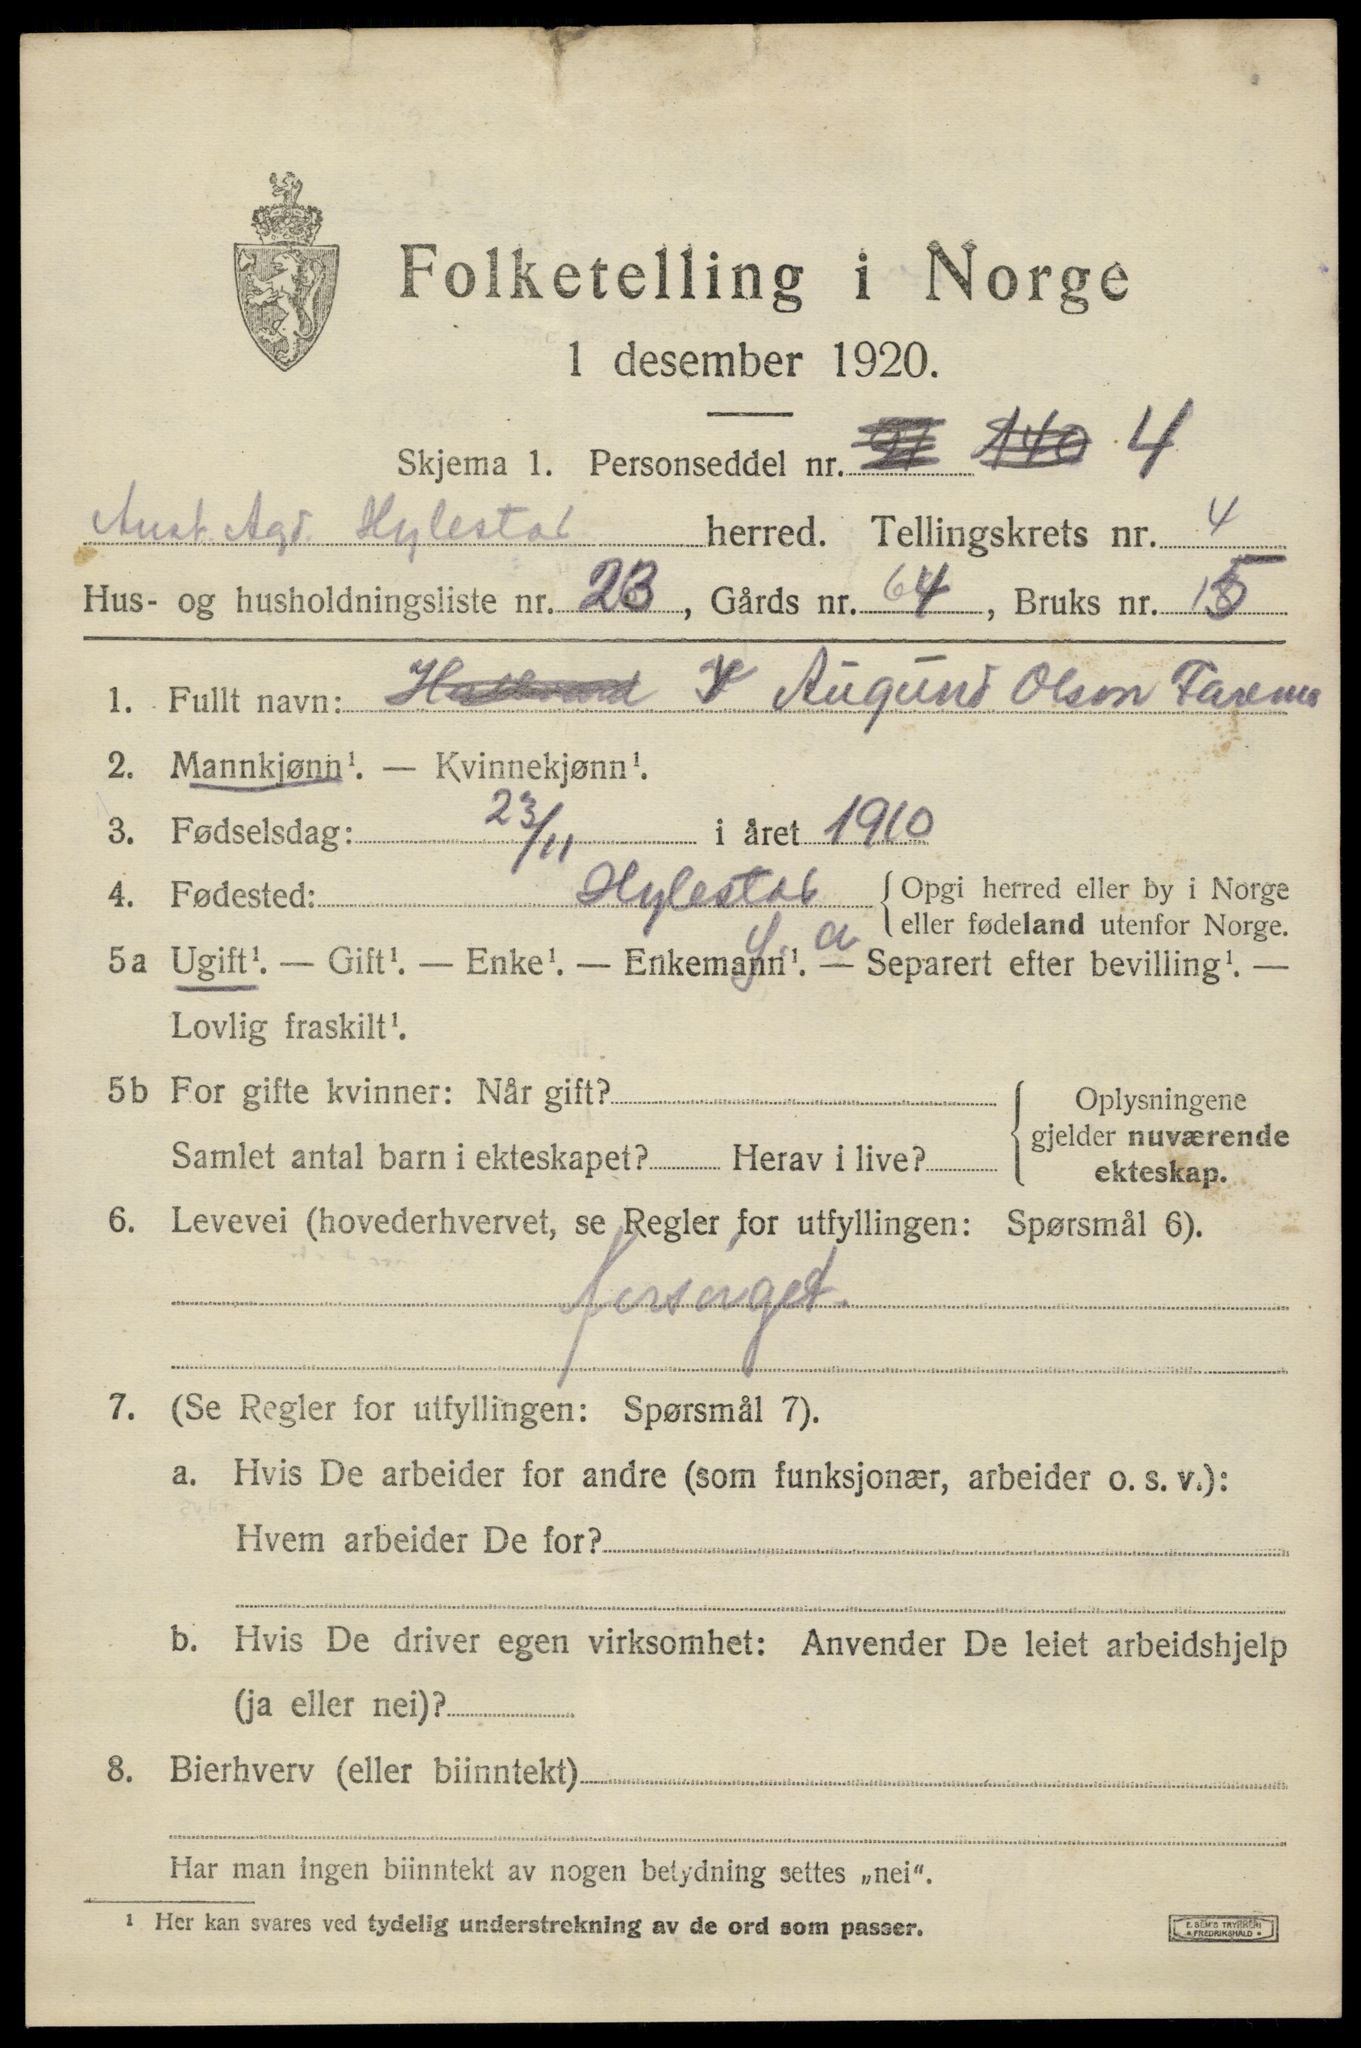 Folketelling i Norge
1 desember 1920.
Skjema 1. Personseddel nr. 91 140 4
Aust. Agd. Hylestad herred. Tellingskrets nr. 4
Hus- og husholdningsliste nr. 23, Gårds nr. 64, Bruks nr. 15
1. Fullt navn: Hallvard Augund Olson
2. Mannkjønn¹. — Kvinnekjønn¹.
3. Fødselsdag: 23/11 i året 1910
4. Fødested: Hylestad { Opgi herred eller by i Norge
eller fødeland utenfor Norge.
5a Ugift¹. — Gift¹. — Enke¹. — Enkemann¹. — Separert efter bevilling¹. —
Lovlig fraskilt¹.
5b For gifte kvinner: Når gift?
Samlet antal barn i ekteskapet? Herav i live?
Oplysningene
gjelder nuværende
ekteskap.
6. Levevei (hovederhvervet, se Regler for utfyllingen: Spørsmål 6).
forsørget.
7. (Se Regler for utfyllingen: Spørsmål 7).
a. Hvis De arbeider for andre (som funksjonær, arbeider o. s. v.):
Hvem arbeider De for?
b. Hvis De driver egen virksomhet: Anvender De leiet arbeidshjelp
(ja eller nei)?
8. Bierhverv (eller biinntekt)
Har man ingen biinntekt av nogen betydning settes „nei“.
¹ Her kan svares ved tydelig understrekning av de ord som passer.
E. SEM'S TRYKKERI
FREDRIKSHALD